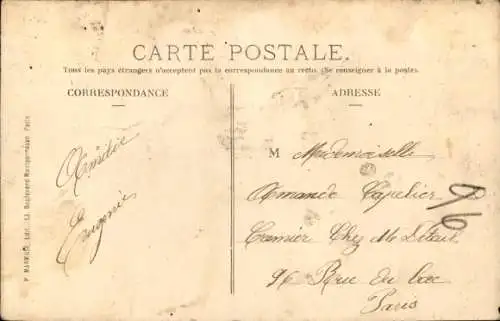 CARTE POSTALE.
Tous les pays étrangers n'acceptent pas la correspondance au recto. (Se renseigner à la poste).
CORRESPONDANCE
ADRESSE
Amélie
Eugénie
M Mademoiselle
Amande Capelier
Chez Mr
96 Rue du bac
Paris
96
P. MARMUSE, Edit., 13, Boulevard Montparnasse, Paris